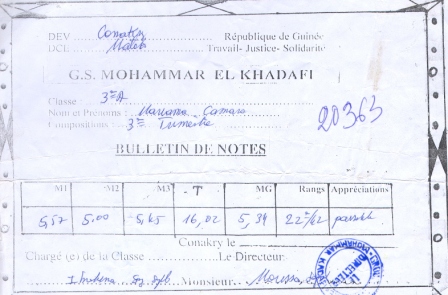 DEV Conakry République de Guinée
DCE Matoto Travail- Justice- Solidarité
G.S. MOHAMMAR EL KHADAFI
Classe : 3è A
Nom et Prénoms : Mariama Camara
Compositions : 3è Trimestre
20363
BULLETIN DE NOTES
M1 M2 M3 T MG Rangs Appréciations
5,57 5,00 5,45 16,02 5,34 22è/62 passable
Conakry le
Chargé (e) de la Classe Le Directeur
Monsieur Moussa